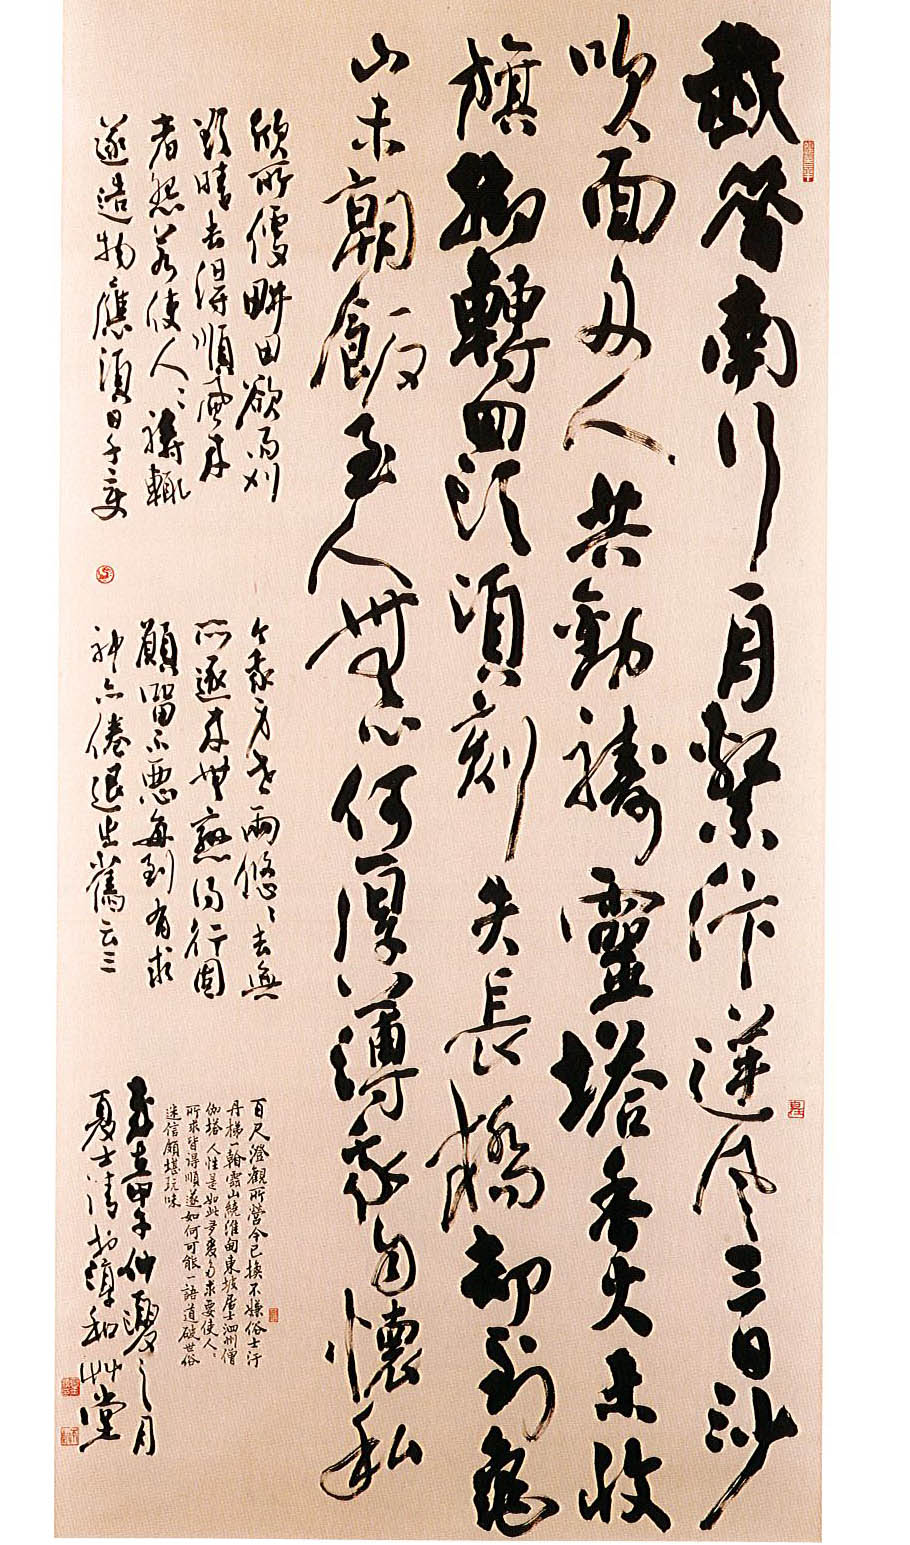 我昔南行舟繫汴逆風三日沙
吹面舟人共勸禱靈塔香火未收
旗腳轉回頭頃刻失長橋却到龜
山未朝飯至人無心何厚薄我自懷私
欣所便耕田欲雨刈
欲晴去得順風来
者怨若使人人禱輒
遂造物應須日千變
今我身世兩悠悠去無
所逐来無戀得行固
願留不惡每到有求
神亦倦退之舊云三
百尺澄觀所營今已換不嫌俗士汙
丹梯一看雲山繞淮甸東坡居士泗州僧
伽塔 人性是如此多變多求要使人人
所求皆得順遂如何可能一語道破世俗
迷信頗堪玩味
歲在甲子仲夏之月
夏士清於淳和艸堂